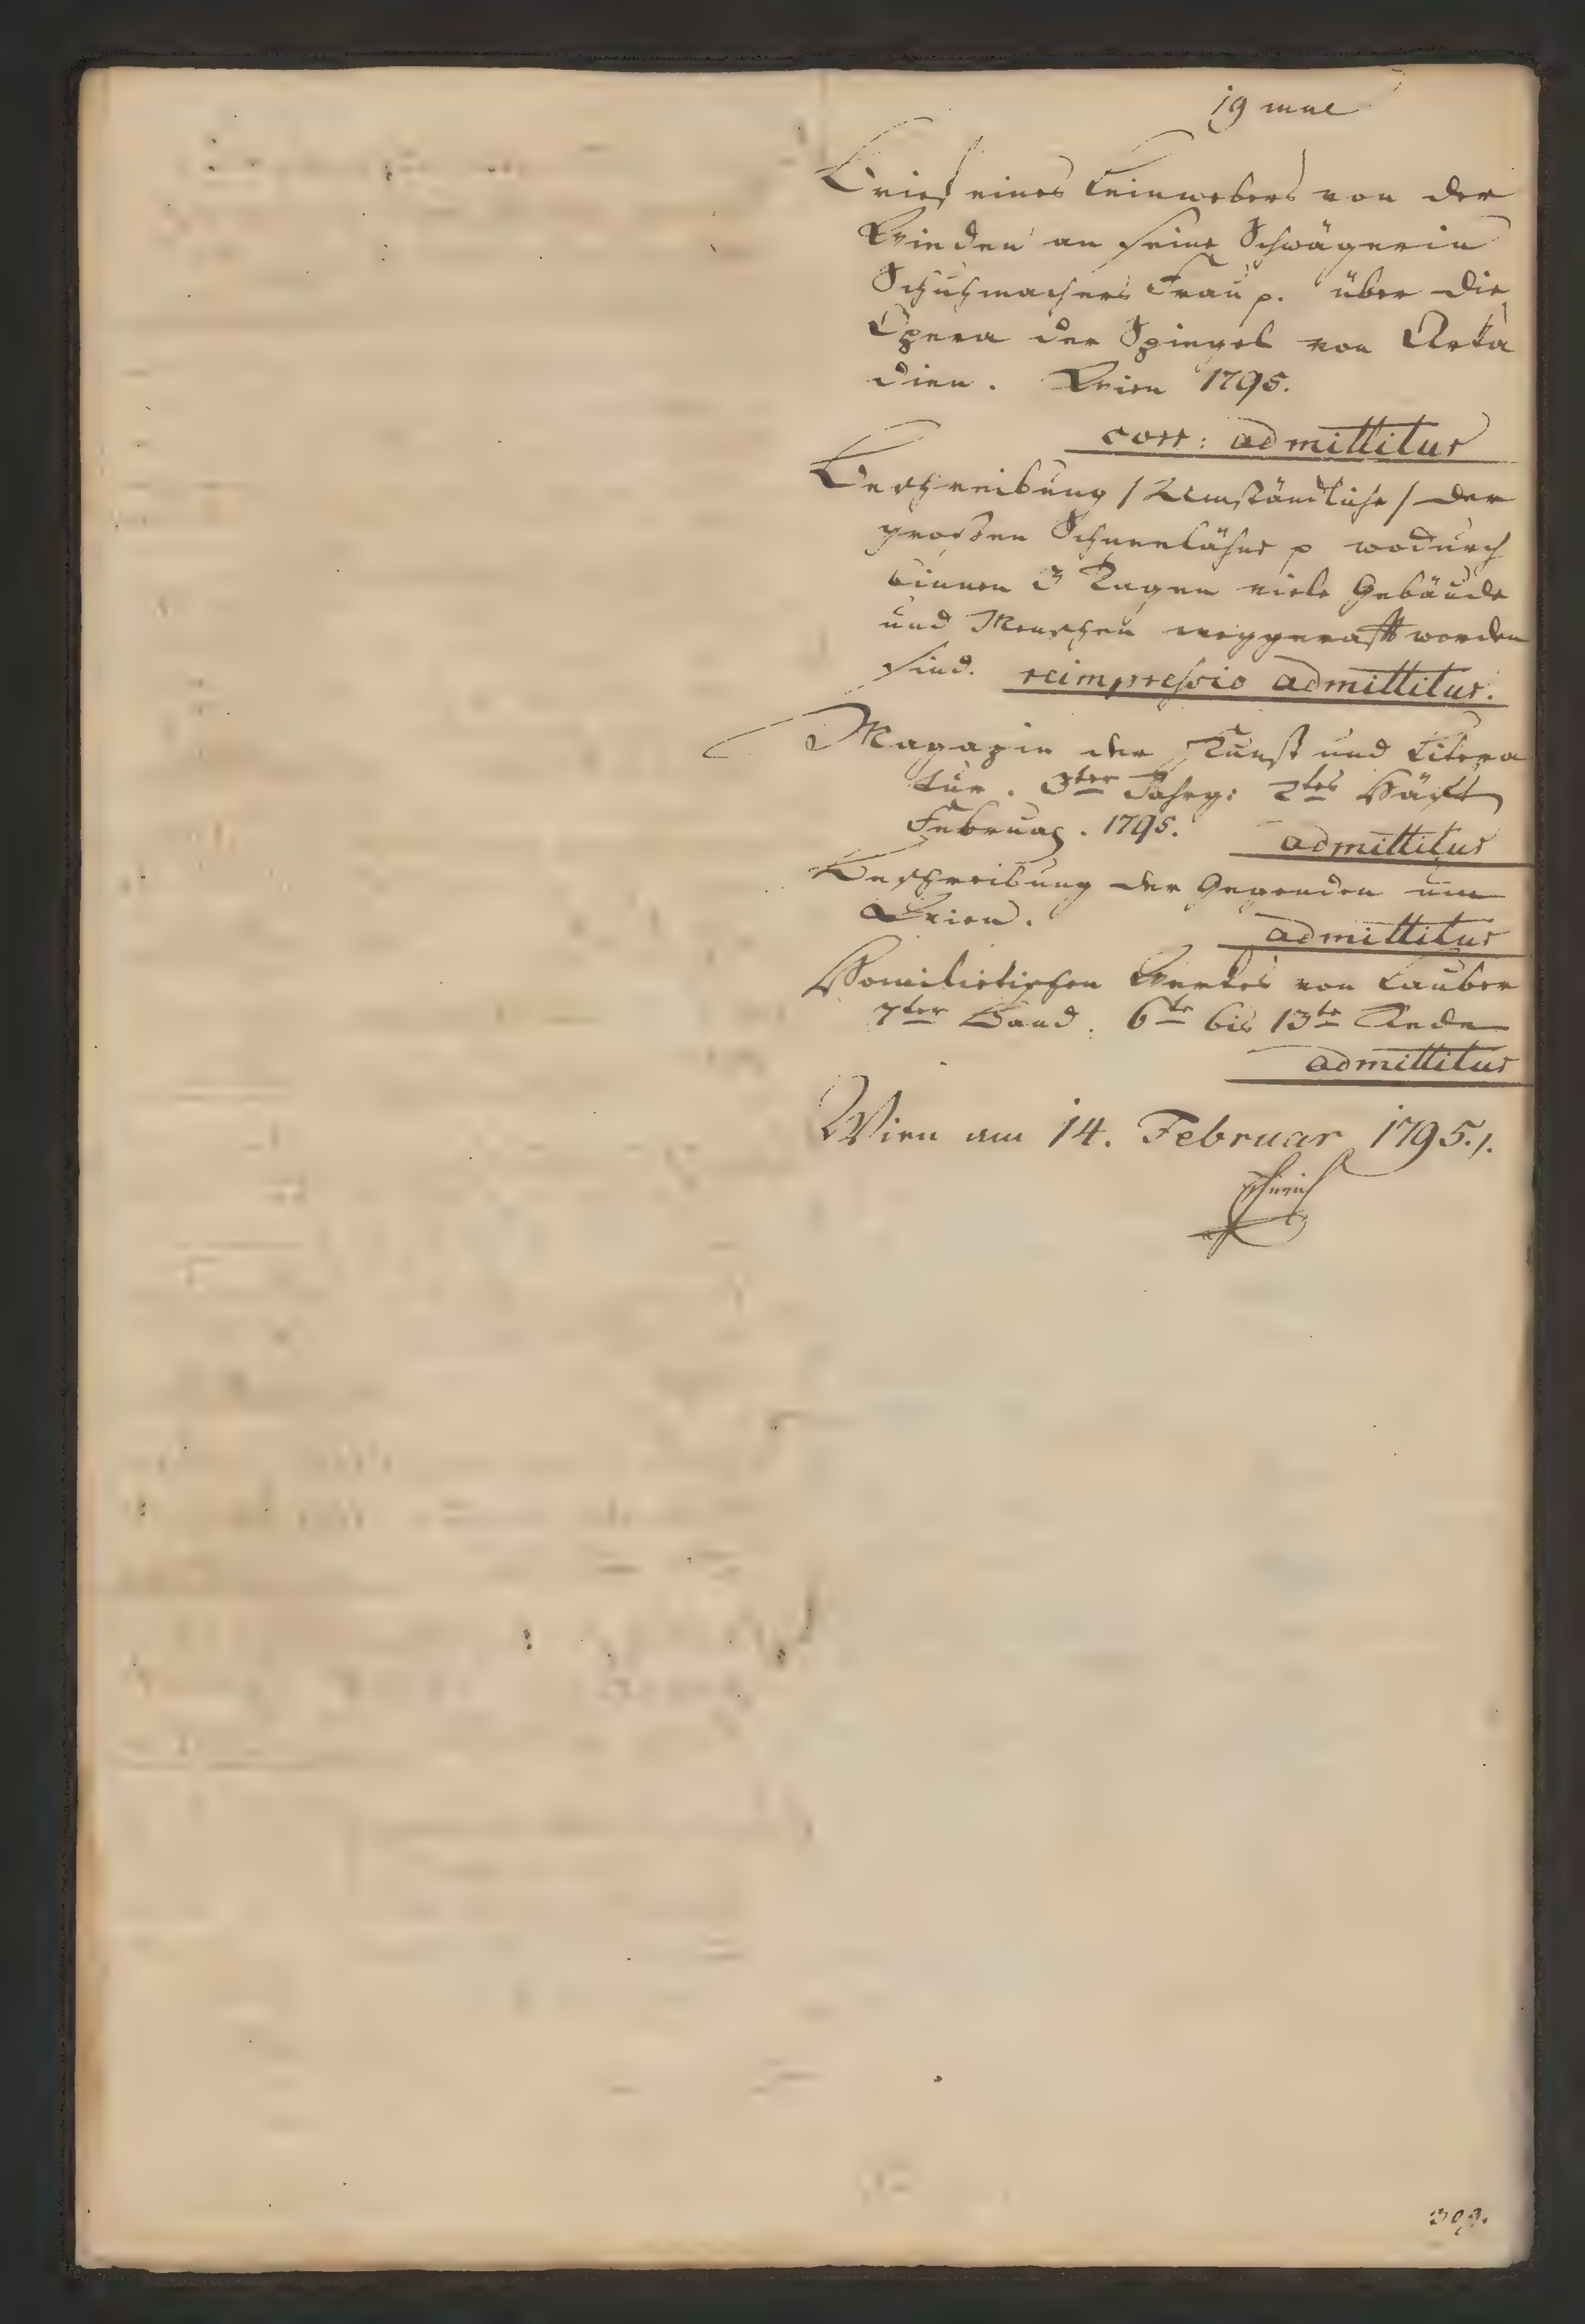 Brief eines Leinwebers von der
Wieden an seine Schwägerin
Schuhmachers Frau p. über die
Opera der Spiegel von Arka
dien. Wien 1795.
corr: admittitur
Beschreibung /Umständliche/ der
großen Schneelähne p wodurch
binnen 3 Tagen viele Gebäude
und Menschen weggerafft worden
sind. reimpressio admittitur.
Magazin der Kunst und Litera
tur. 3ter Jahrg: 2tes Häft
Februar. 1795. admittitur
Beschreibung der Gegenden um
Wien. admittitur
Homiletischen Werkes von Lauber
7ter Band. 6te bis 13te Rede
admittitur
Wien am 14. Februar 1795./.